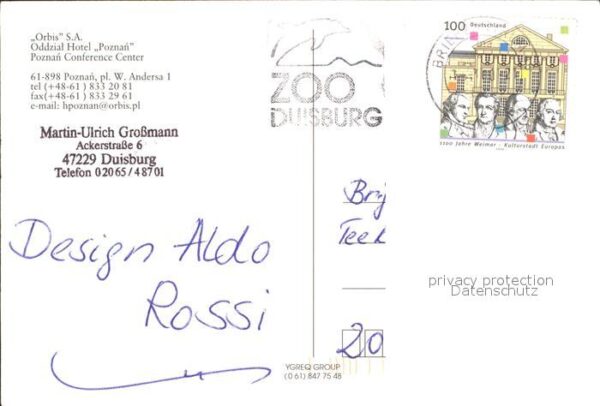 „Orbis" S.A.
Oddział Hotel „Poznań"
Poznań Conference Center
61-898 Poznań, pl. W. Andersa 1
tel (+48-61 ) 833 20 81
fax(+48-61 ) 833 29 61
e-mail: hpoznan@orbis.pl
Martin-Ulrich Großmann
Ackerstraße 6
47229 Duisburg
Telefon 0 20 65 / 4 87 01
Design Aldo
Rossi
ZOO
DUISBURG
100 Deutschland
1100 Jahre Weimar · Kulturstadt Europas
20
privacy protection
Datenschutz
YGREQ GROUP
(0 61) 847 75 48